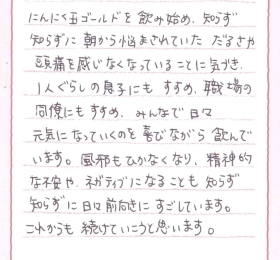 にんにく玉ゴールドを飲み始め、知らず
知らずに朝から悩まされていただるさや
頭痛を感じなくなっていることに気づき、
1人ぐらしの息子にもすすめ、職場の
同僚にもすすめ、みんなで日々
元気になっていくのを喜びながら飲んで
います。風邪もひかなくなり、精神的
な不安や、ネガティブになることも知らず
知らずに日々前向きにすごしています。
これからも続けていこうと思います。